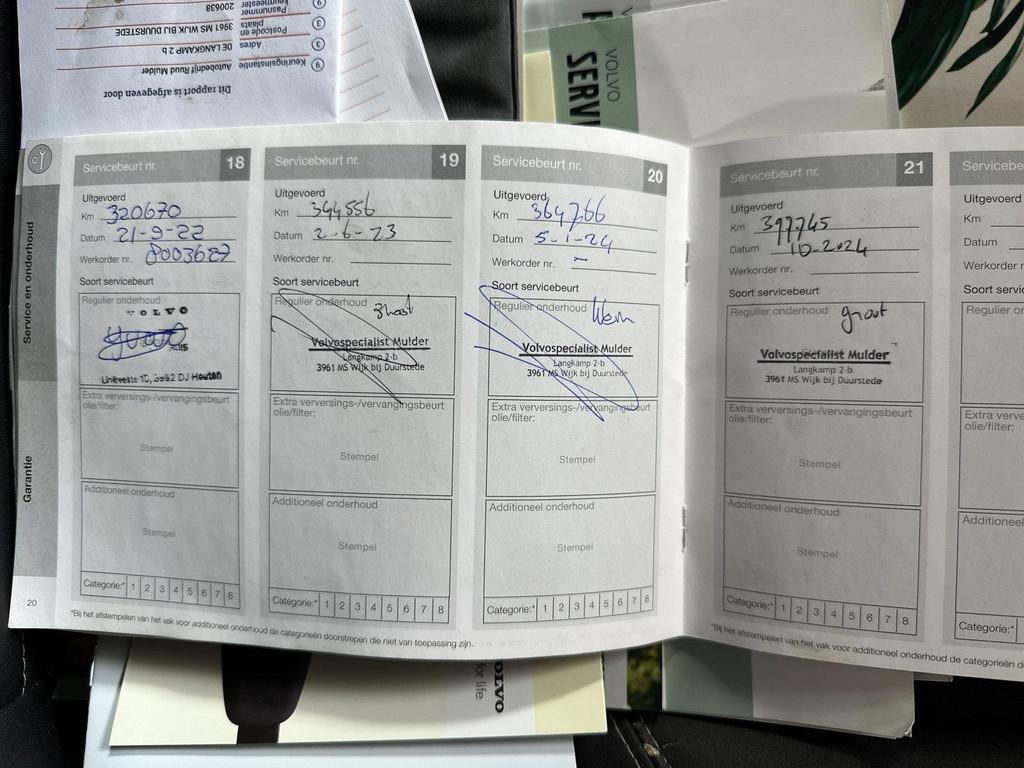 200638
Keurmeester
Pasnummer
3961 MS WIJK BIJ DUURSTEDE
Postcode en
plaats
DE LANGKAMP 2 b
Adres
Autobedrijf Ruud Mulder
Keuringsinstantie
Dit rapport is afgegeven door
VOLVO
SERV
Service en onderhoud
Garantie
20
Servicebeurt nr. 18
Uitgevoerd
Km 320670
Datum 21-9-22
Werkorder nr. 8003687
Soort servicebeurt
Regulier onderhoud
VOLVO
Houten
Extra verversings-/vervangingsbeurt
olie/filter:
Stempel
Additioneel onderhoud
Stempel
Categorie:* 1 2 3 4 5 6 7 8
Servicebeurt nr. 19
Uitgevoerd
Km 344556
Datum 2-6-23
Werkorder nr.
Soort servicebeurt
Regulier onderhoud groot
Volvospecialist Mulder
Langkamp 2-b
3961 MS Wijk bij Duurstede
Extra verversings-/vervangingsbeurt
olie/filter:
Stempel
Additioneel onderhoud
Stempel
Categorie:* 1 2 3 4 5 6 7 8
Servicebeurt nr. 20
Uitgevoerd
Km 364766
Datum 5-1-24
Werkorder nr. -
Soort servicebeurt
Regulier onderhoud
Volvospecialist Mulder
Langkamp 2-b
3961 MS Wijk bij Duurstede
Extra verversings-/vervangingsbeurt
olie/filter:
Stempel
Additioneel onderhoud
Stempel
Categorie:* 1 2 3 4 5 6 7 8
*Bij het afstempelen van het vak voor additioneel onderhoud de categorieën doorstrepen die niet van toepassing zijn.
Servicebeurt nr. 21
Uitgevoerd
Km 397745
Datum 10-2024
Werkorder nr.
Soort servicebeurt
Regulier onderhoud groot
Volvospecialist Mulder
Langkamp 2-b
3961 MS Wijk bij Duurstede
Extra verversings-/vervangingsbeurt
olie/filter:
Stempel
Additioneel onderhoud
Stempel
Categorie:* 1 2 3 4 5 6 7 8
*Bij het afstempelen van het vak voor additioneel onderhoud de categorieën d
Servicebe
Uitgevoerd
Km
Datum
Werkorder n
Soort servic
Regulier on
Extra verve
olie/filter:
Additioneel
Categorie:*
for life.
VOLVO